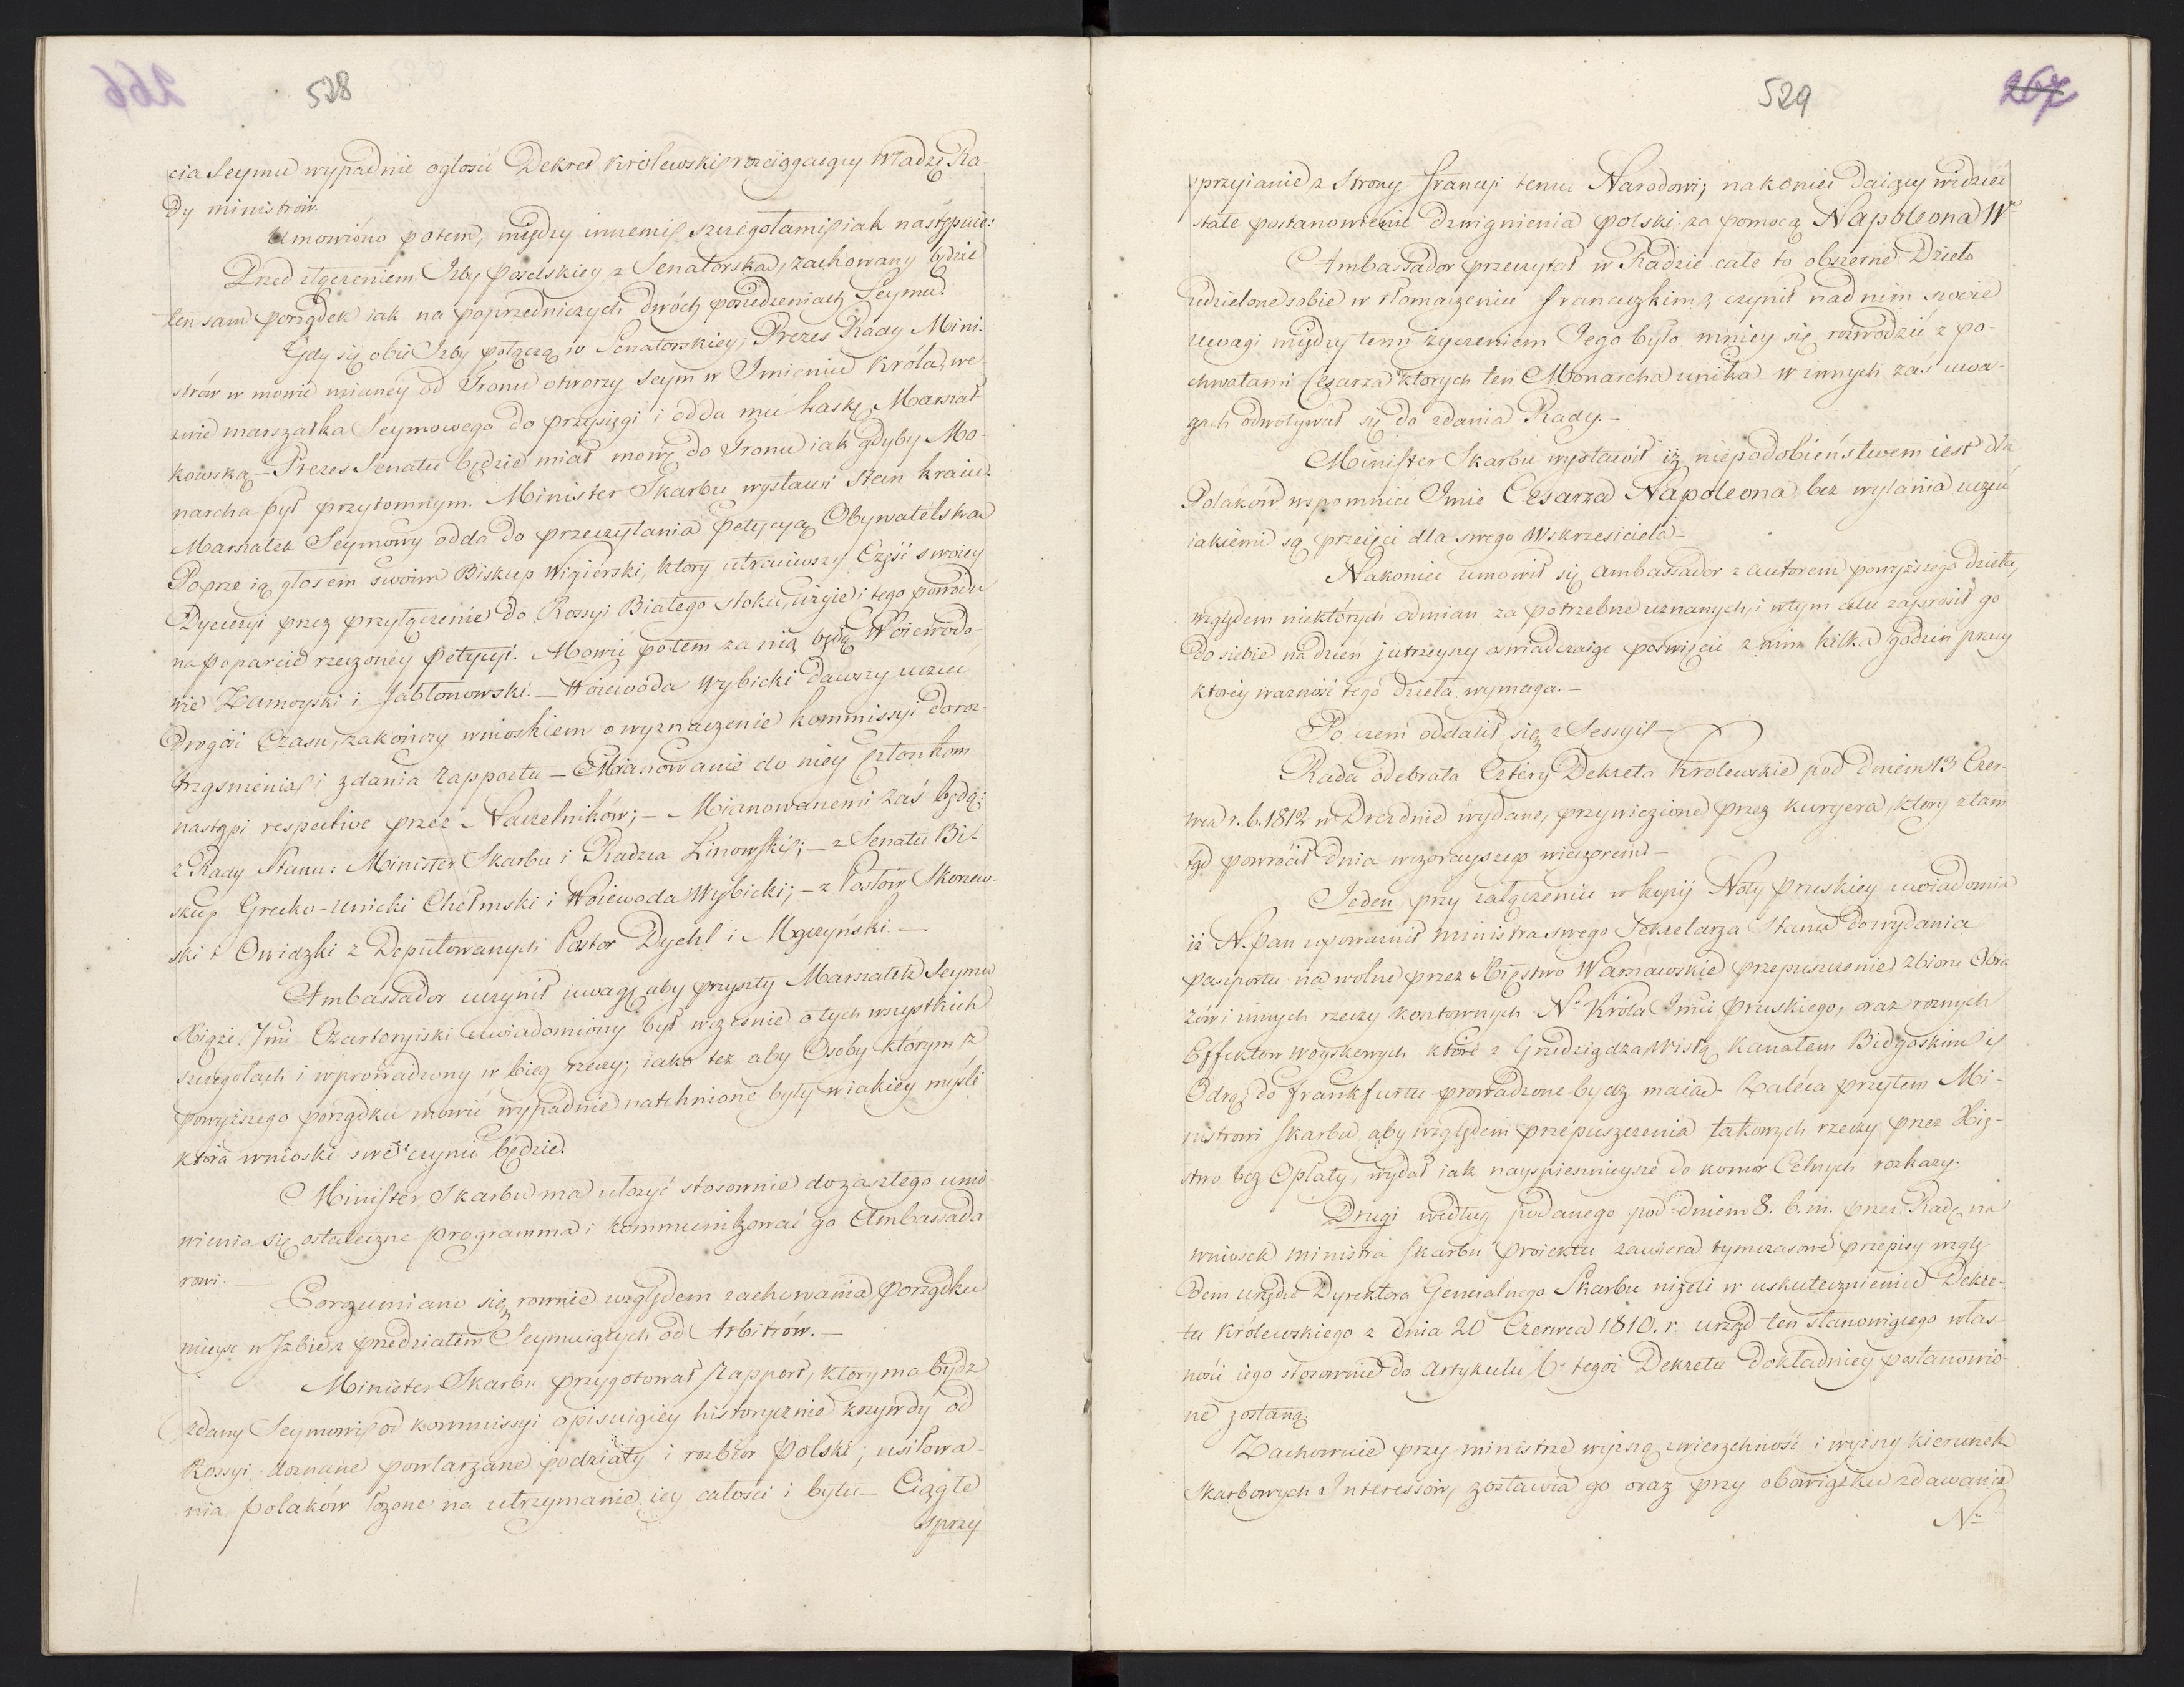 528
cia Seymu wypadnie ogłosić Dekret Królewski rozciągaiący Władzę Ra-
dy ministrów.
Umowiono potem, między innemi szczegołami iak następuie:
Przed złączeniem Izby Poselskiey z Senatorską, zachowany będzie
ten sam porządek iak na poprzedniczych dwóch posiedzeniach Seymu.
Gdy się obie Izby połączą w Senatorskiey, Prezes Rady Mini-
strów w mowie mianey od Tronu otworzy Seym w Imieniu Króla, we-
zwie marszałka Seymowego do przysięgi i odda mu laskę Marszał-
kowską – Prezes Senatu będzie miał mowę do Tronu iak gdyby Mo-
narcha był przytomnym. Minister Skarbu wystawi Stan kraiu.
Marszałek Seymowy odda do przeczytania Petycyą Obywatelską
Poprze ią głosem swoim Biskup Wigierski, który utraciwszy Część swoiey
Dyecezyi przez przyłączenie do Rossyi Białego stoku, użyie i tego powodu
na poparcie rzeczoney petycyi. Mowić potem za nią będą Woiewodo-
wie Zamoyski i Jabłonowski. – Woiewoda Wybicki dawszy uczuć
Drogość Czasu, zakończy wnioskiem o wyznaczenie kommissyi do roz-
trząśnienia i zdania rapportu – Mianowanie do niey Członkom
nastąpi respective przez Naczelników; – Mianowanemi zaś będą:
z Rady Stanu: Minister Skarbu i Radzca Linowski; – z Senatu Bi-
skup Grecko-Unicki Chełmski i Woiewoda Wybicki; – z Posłów Skorzew-
ski i Owidzki z Deputowanych Pastor Dyehl i Mączyński. –
Ambassador uczynił uwagę aby przyszły Marszałek Seymu
Xiąże Jmć Czartoryiski uwiadomiony był wcześnie o tych wszystkich
szczegołach i wprowadzony w bieg rzeczy; iako też aby Osoby którym z
powyższego porządku mowić wypadnie natchnione były w iakiey myśli
która wnioski swe czynić będzie.
Minister Skarbu ma ułożyć stosownie do zaszłego umo-
wienia się ostateczne programma i kommunikować go Ambassado-
rowi. –
Porozumiano się rownie względem zachowania porządku
mieysc w Izbie z przedziałem Seymuiących od Arbitrów. –
Minister Skarbu przygotował Rapport, który ma bydz
zdany Seymowi od kommissyi opisuiącey historycznie krzywdy od
Rossyi doznane powtarzane podziały i rozbiór Polski; usiłowa-
nia Polaków łożone na utrzymanie iey całości i bytu – Ciągłe
sprzy
529
267
sprzyianie z Strony francyi temu Narodowi; nakoniec daiący widzieć
stałe postanowienie dzwignienia polski za pomocą Napoleona Wo
Ambassador przeczytał w Radzie całe to obszerne Dzieło
udzielone sobie w tłomaczeniu francuzkim, czynił nad nim swoie
uwagi między temi życzeniem Jego było mniey się rozwodzić z po-
chwałami Cesarza których ten Monarcha unika w innych zaś uwa-
gach odwoływał się do zdania Rady. –
Minister Skarbu wystawił iż niepodobieństwem iest dla
Polaków wspomnieć Imie Cesarza Napoleona bez wylania uczuć
iakiemi są przeięci dla swego Wskrzesiciela –
Nakoniec umowił się ambassador z autorem powyższego dzieła,
względem niektórych odmian za potrzebne uznanych, i w tym celu zaprosił go
do siebie na dzień jutrzeyszy oświadczaiąc poświęcić z nim kilka godzin pracy
którey ważność tego dzieła wymaga. –
Po czem oddalił się z Sessyi –
Rada odebrała Cztery Dekreta Krolewskie pod dniem 13 Czer-
wca r. b. 1812 w Dreznie wydane, przywiezione przez kuryera, który ztam-
tąd powrócił dnia wczorayszego wieczorem. –
Jeden przy załączeniu w kopij Noty pruskiey uwiadomia
iż N. Pan upoważnił ministra swego Sekretarza Stanu do wydania
paszportu na wolne przez Xięstwo Warszawskie przepuszczenie Zbioru Obra
zów i innych rzeczy kosztownych No Króla Jmci pruskiego, oraz roznych
Effektów woyskowych które z Grudziądza Wisłą kanałem Bidgoskim i
Odrą do frankfurtu prowadzone bydz maią – Zaleca przytem Mi-
nistrowi skarbu aby względem przepuszczenia takowych rzeczy przez Xię-
stwo bez Opłaty, wydał iak nayspiesznieysze do komor Celnych rozkazy.
Drugi według podanego pod dniem 8. b. m. przez Radę na
wniosek ministra skarbu proiektu zawiera tymczasowe przepisy wzglę-
dem urzędu Dyrektora Generalnego Skarbu niżeli w uskutecznieniu Dekre-
tu Królewskiego z dnia 20 Czerwca 1810. r. urząd ten stanowiącego włas-
ności iego stosownie do artykułu 6o tegoż Dekretu dokładniey postanowio-
ne zostaną.
Zachowuie przy ministrze wyższą zwierzchność i wyższy kierunek
Skarbowych Interessów, zostawia go oraz przy obowiązku zdawania
No